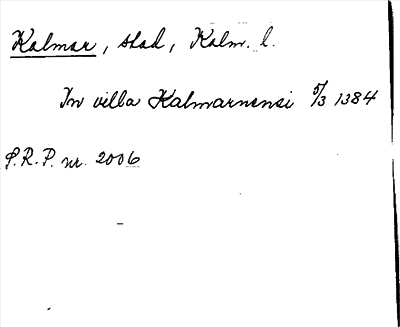 Kalmar, stad, Kalm. l.
In villa Kalmarnensi 5/3 1384
S.R.P. nr. 2006